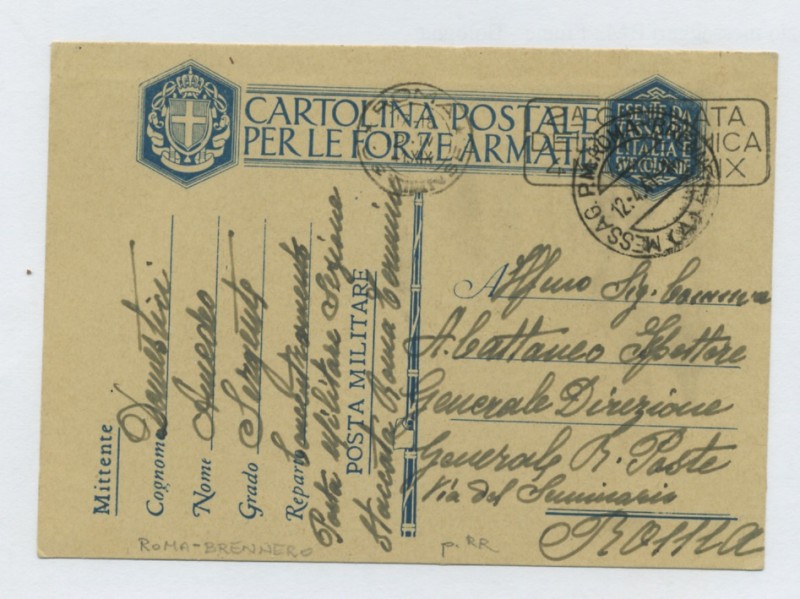 CARTOLINA POSTALE
PER LE FORZE ARMATE
ESENTE DA
TASSA
ITALIA E
SVCOLONIE
MESSAG. P.M. ROMA
12.4
Mittente
Cognome Domestici
Nome Amedeo
Grado Sergente
Reparto Concentramento
Posta Militare Sezione
Staccata Roma
POSTA MILITARE
All'Ill/mo Sig. Comm
A. Cattaneo Ispettore
Generale Direzione
Generale R. Poste
Via del Seminario
ROMA
ROMA-BRENNERO
p. RR